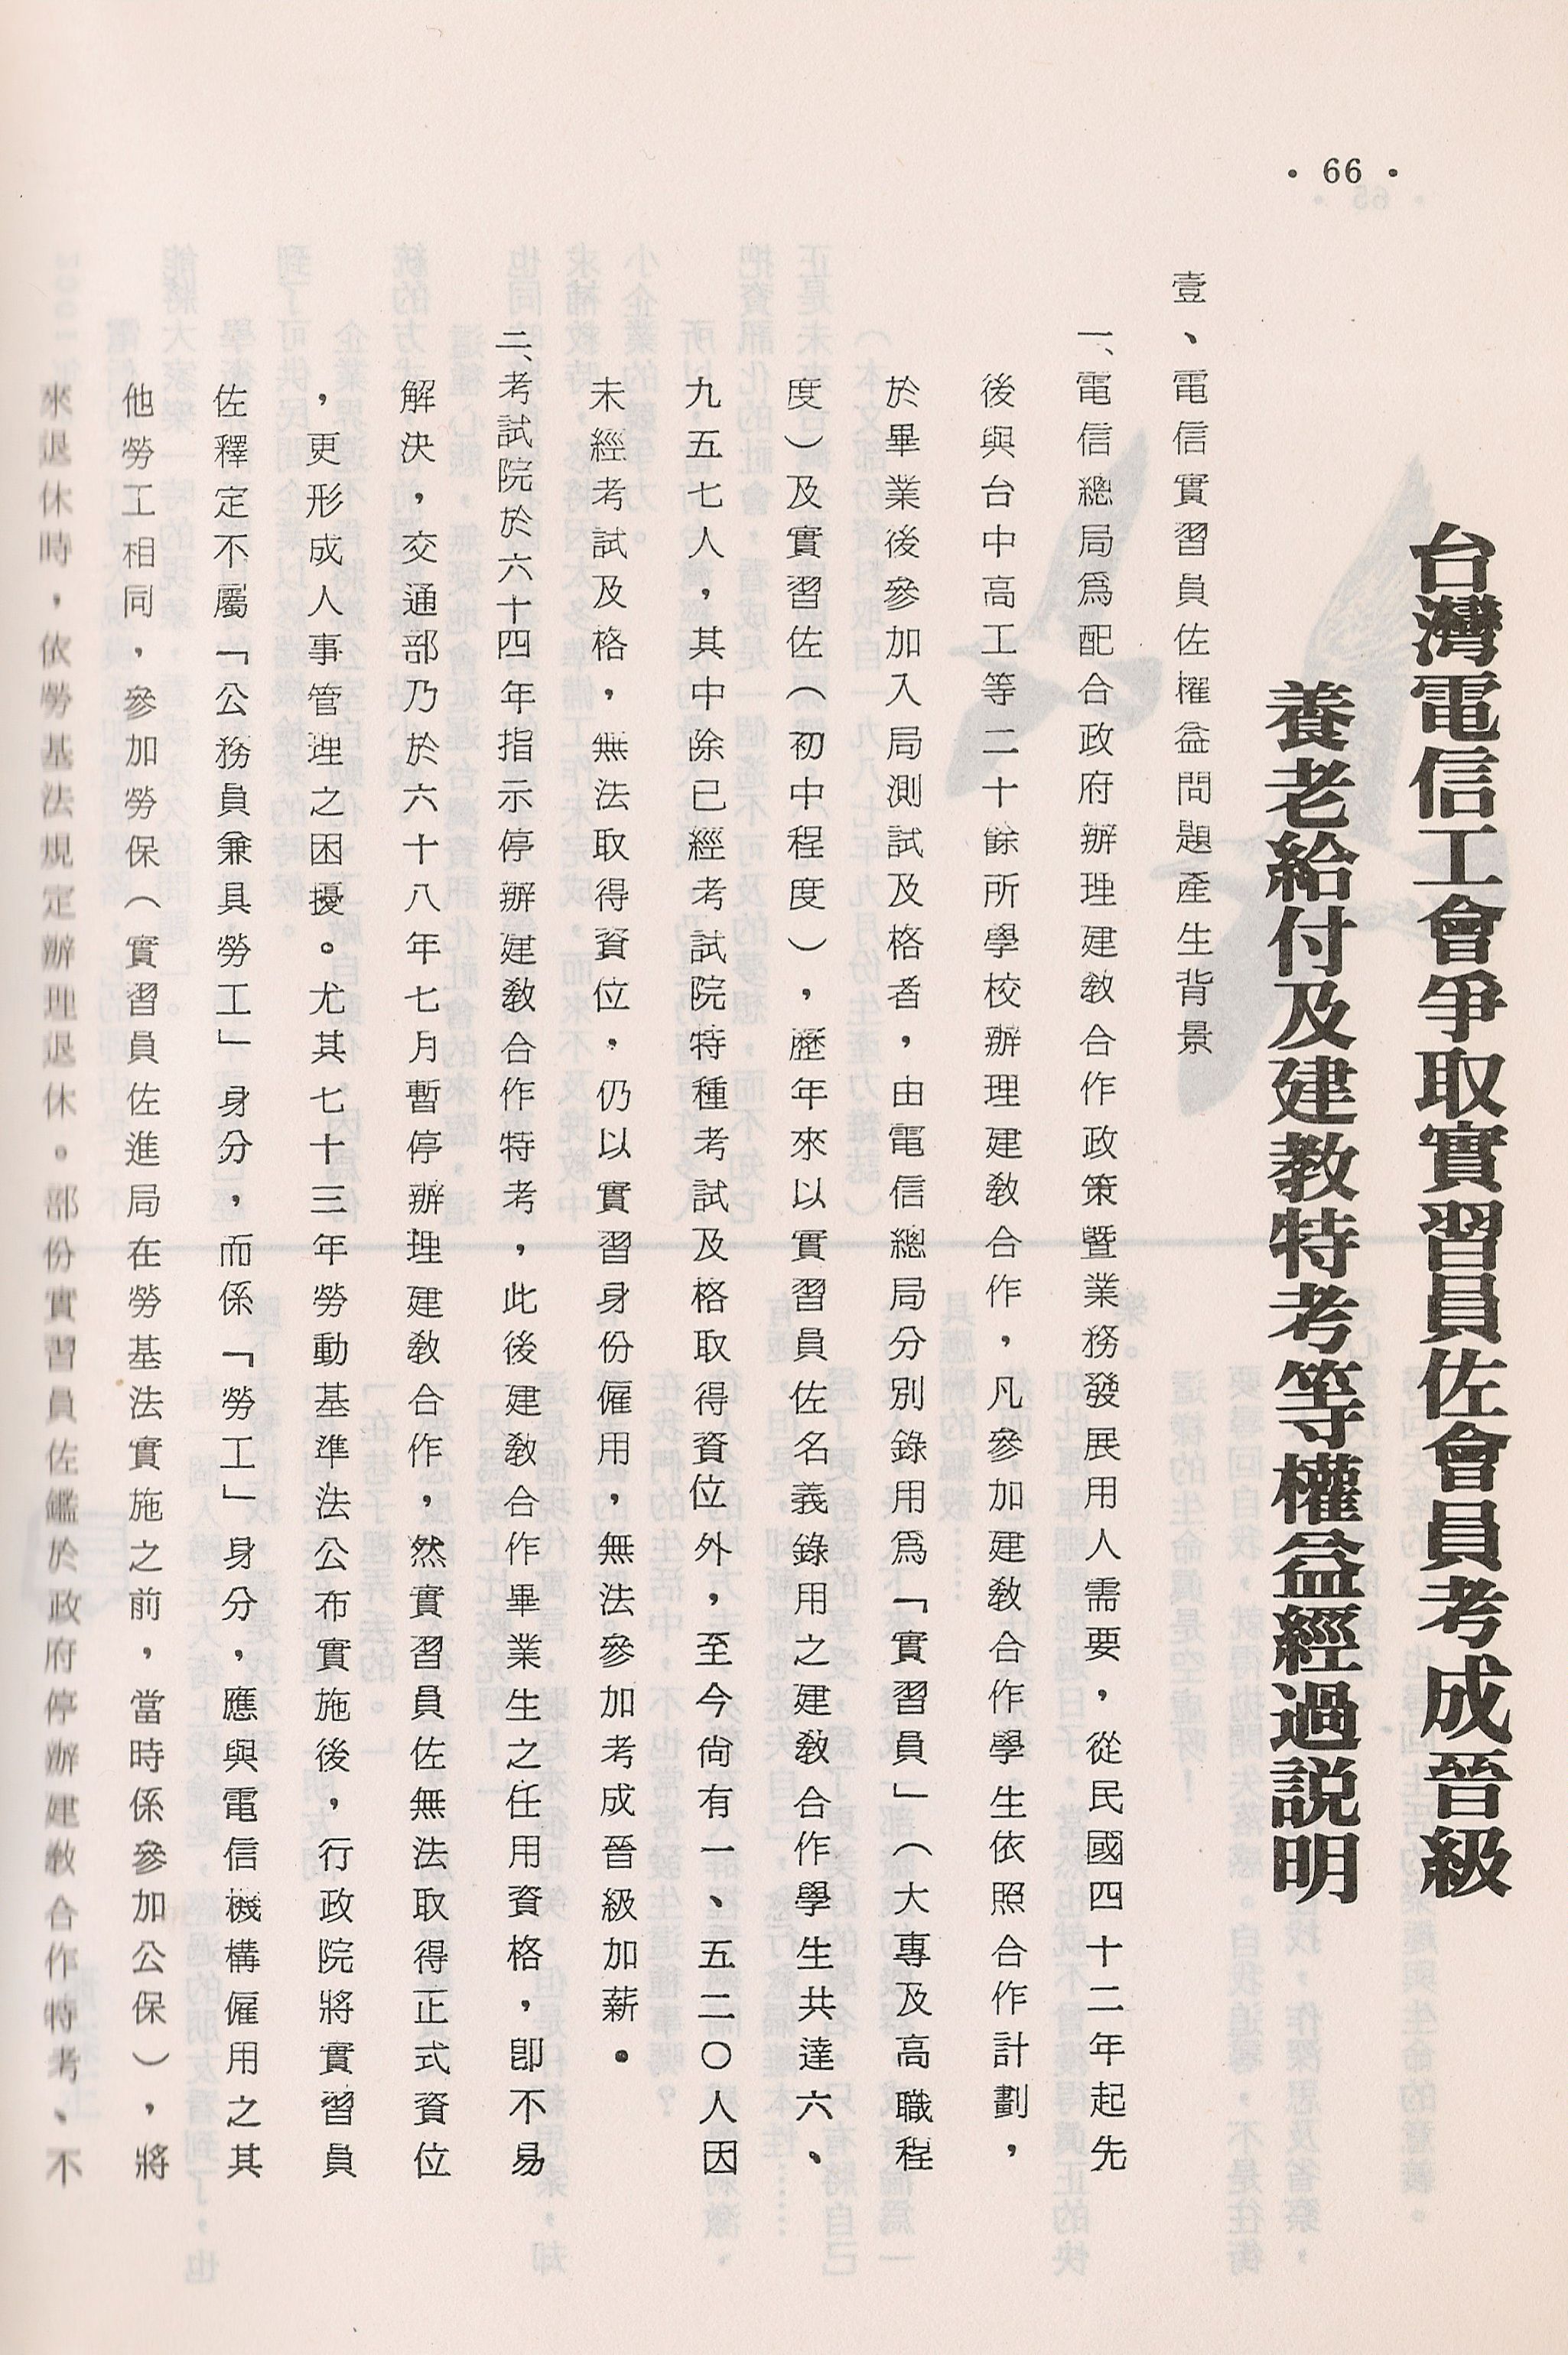 • 66 •
台灣電信工會爭取實習員佐會員考成晉級
養老給付及建教特考等權益經過説明
壹、電信實習員佐權益問題產生背景
一、電信總局爲配合政府辦理建教合作政策暨業務發展用人需要，從民國四十二年起先
後與台中高工等二十餘所學校辦理建教合作，凡參加建教合作學生依照合作計劃，
於畢業後參加入局測試及格者，由電信總局分別錄用爲「實習員」（大專及高職程
度）及實習佐（初中程度），歷年來以實習員佐名義錄用之建教合作學生共達六、
九五七人，其中除已經考試院特種考試及格取得資位外，至今尙有一、五二〇人因
未經考試及格，無法取得資位，仍以實習身份僱用，無法參加考成晉級加薪。
二、考試院於六十四年指示停辦建教合作特考，此後建教合作畢業生之任用資格，卽不易
解決，交通部乃於六十八年七月暫停辦理建教合作，然實習員佐無法取得正式資位
，更形成人事管理之困擾。尤其七十三年勞動基準法公布實施後，行政院將實習員
佐釋定不屬「公務員兼具勞工」身分，而係「勞工」身分，應與電信機構僱用之其
他勞工相同，參加勞保（實習員佐進局在勞基法實施之前，當時係參加公保），將
來退休時，依勞基法規定辦理退休。部份實習員佐鑑於政府停辦建教合作特考、不